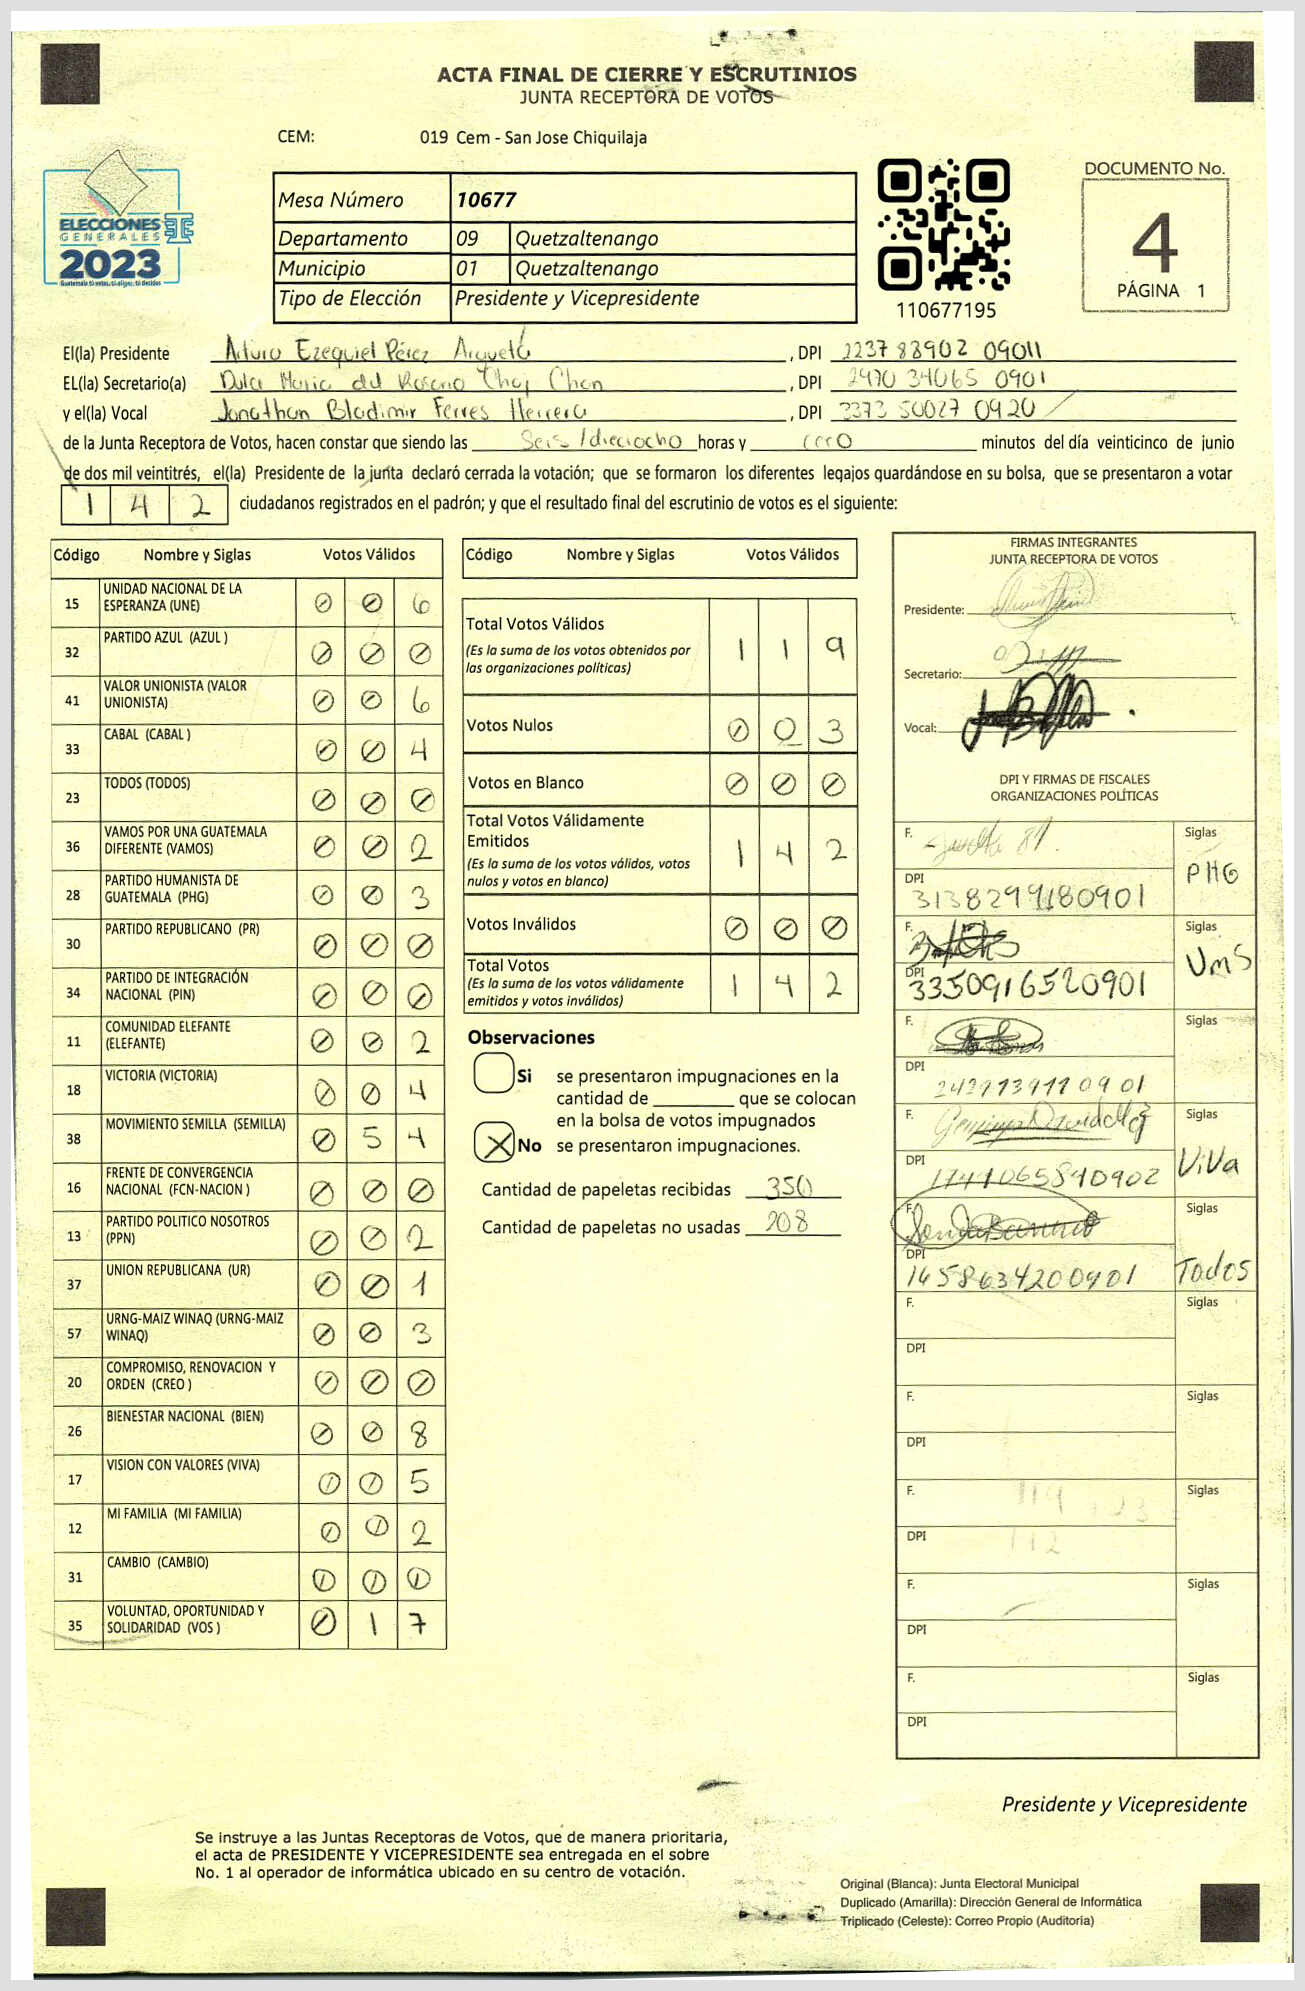 ACTA FINAL DE CIERRE Y ESCRUTINIOS
JUNTA RECEPTORA DE VOTOS
CEM: 019 Cem - San Jose Chiquilaja
DOCUMENTO No.
4
PÁGINA 1
ELECCIONES
GENERALES
2023
Guatemala tú votas, tú eliges, tú decides
TSE
Mesa Número 10677
Departamento 09 Quetzaltenango
Municipio 01 Quetzaltenango
Tipo de Elección Presidente y Vicepresidente
110677195
El(la) Presidente Arturo Ezequiel Pérez Argueta, DPI 2237 83902 09011
EL(la) Secretario(a) Dulce Maria del Rosario Chaj Chan, DPI 2970 34065 0901
y el(la) Vocal Jonathan Bladimir Ferres Herrera, DPI 3373 50027 0920
de la Junta Receptora de Votos, hacen constar que siendo las Seis / dieciocho horas y cero minutos del día veinticinco de junio
de dos mil veintitrés, el(la) Presidente de la junta declaró cerrada la votación; que se formaron los diferentes legajos guardándose en su bolsa, que se presentaron a votar
1 4 2 ciudadanos registrados en el padrón; y que el resultado final del escrutinio de votos es el siguiente:
Código Nombre y Siglas Votos Válidos
15 UNIDAD NACIONAL DE LA ESPERANZA (UNE) 0 0 6
32 PARTIDO AZUL (AZUL ) 0 0 0
41 VALOR UNIONISTA (VALOR UNIONISTA) 0 0 6
33 CABAL (CABAL ) 0 0 4
23 TODOS (TODOS) 0 0 0
36 VAMOS POR UNA GUATEMALA DIFERENTE (VAMOS) 0 0 2
28 PARTIDO HUMANISTA DE GUATEMALA (PHG) 0 0 3
30 PARTIDO REPUBLICANO (PR) 0 0 0
34 PARTIDO DE INTEGRACIÓN NACIONAL (PIN) 0 0 0
11 COMUNIDAD ELEFANTE (ELEFANTE) 0 0 2
18 VICTORIA (VICTORIA) 0 0 4
38 MOVIMIENTO SEMILLA (SEMILLA) 0 5 4
16 FRENTE DE CONVERGENCIA NACIONAL (FCN-NACION ) 0 0 0
13 PARTIDO POLITICO NOSOTROS (PPN) 0 0 2
37 UNION REPUBLICANA (UR) 0 0 1
57 URNG-MAIZ WINAQ (URNG-MAIZ WINAQ) 0 0 3
20 COMPROMISO, RENOVACION Y ORDEN (CREO ) 0 0 0
26 BIENESTAR NACIONAL (BIEN) 0 0 8
17 VISION CON VALORES (VIVA) 0 0 5
12 MI FAMILIA (MI FAMILIA) 0 0 2
31 CAMBIO (CAMBIO) 0 0 0
35 VOLUNTAD, OPORTUNIDAD Y SOLIDARIDAD (VOS ) 0 1 7
Código Nombre y Siglas Votos Válidos
Total Votos Válidos 1 1 9
(Es la suma de los votos obtenidos por
las organizaciones políticas)
Votos Nulos 0 0 3
Votos en Blanco 0 0 0
Total Votos Válidamente
Emitidos 1 4 2
(Es la suma de los votos válidos, votos
nulos y votos en blanco)
Votos Inválidos 0 0 0
Total Votos 1 4 2
(Es la suma de los votos válidamente
emitidos y votos inválidos)
Observaciones
Si se presentaron impugnaciones en la
cantidad de ________ que se colocan
en la bolsa de votos impugnados
X No se presentaron impugnaciones.
Cantidad de papeletas recibidas 350
Cantidad de papeletas no usadas 208
FIRMAS INTEGRANTES
JUNTA RECEPTORA DE VOTOS
Presidente:
Secretario:
Vocal:
DPI Y FIRMAS DE FISCALES
ORGANIZACIONES POLÍTICAS
F. Siglas PHG
DPI 3138299180901
F. Siglas UmS
DPI 3350916520901
F. Siglas
DPI 2429739110901
F. Siglas ViVa
DPI 1741065890902
F. Siglas Todos
DPI 1658634200901
F. Siglas
DPI
F. Siglas
DPI
F. Siglas
DPI
F. Siglas
DPI
F. Siglas
DPI
Presidente y Vicepresidente
Se instruye a las Juntas Receptoras de Votos, que de manera prioritaria,
el acta de PRESIDENTE Y VICEPRESIDENTE sea entregada en el sobre
No. 1 al operador de informática ubicado en su centro de votación.
Original (Blanca): Junta Electoral Municipal
Duplicado (Amarilla): Dirección General de Informática
Triplicado (Celeste): Correo Propio (Auditoría)